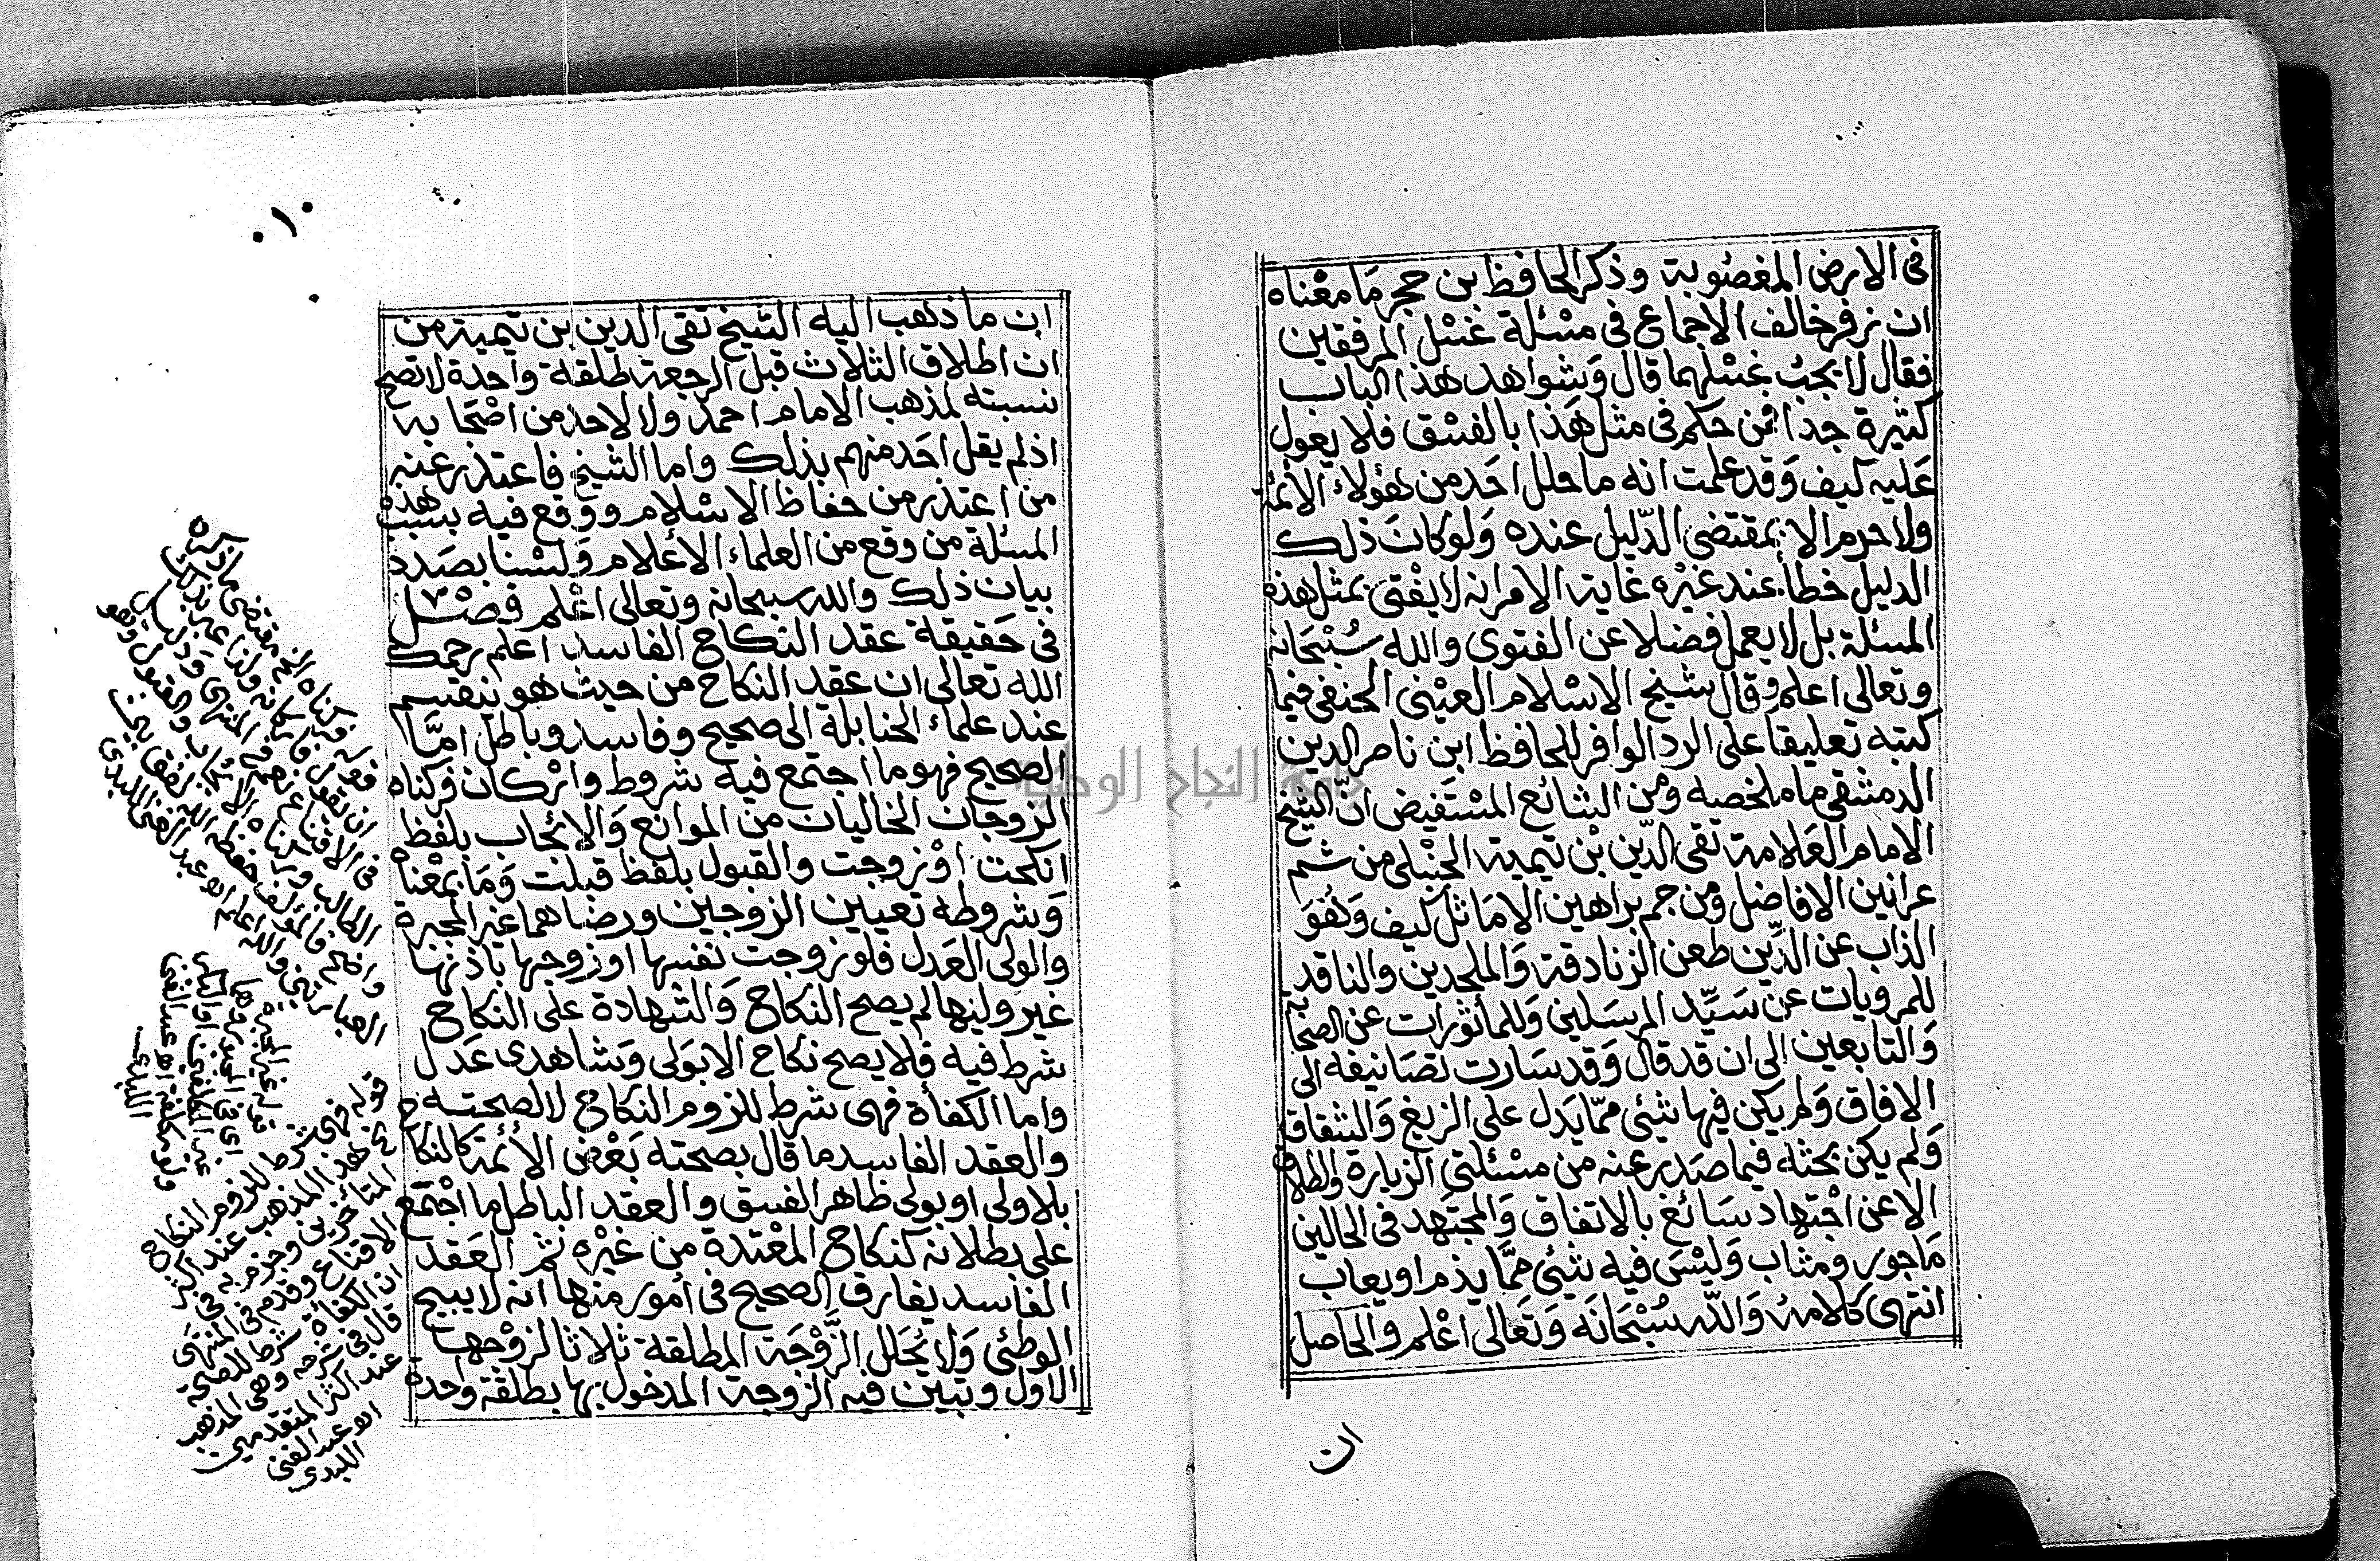 في الارض المغصوبة وذكر الحافظ بن حجر مَا معْناه
ان زفر خالف الاجماع في مسْئلة غسْل المرفقين
فقال لا يجبُ غسْلهما قال وَشواهد هذا الباب
كثيرة جدا فمن حكم في مثل هَذا بالفسْق فلا يعول
عَليه كيف وَقد علمت انه ما حلل احَد من هؤلاء الائمة
ولا حرم الا بمقتضى الدّليل عنده وَلو كانَ ذلك
الدليل خطأ عند غيْره غاية الامر انه لا يفْتى بمثل هذه
المسئلة بل لا يعمل فضلا عن الفتوى والله سُبْحَانه
وتعالى اعلم وقال شيخ الاسْلام العيْنى الحنفي فيما
كتبه تعليقاً على الرد الوافر للحافظ ابن ناصر الدين
الدمشقي ما ملخصه ومن الشائع المسْتفيض انّ الشيخ
الامام العَلامة تقي الدّين بْن تيمية الحنْبلى من شم
عرانين الافاضل ومن جم براهين الامَاثل كيف وَهُوَ
الذاب عن الدِّين طعن الزنادقة وَالملحدين والناقد
للمرويات عن سَيِّد المرسَلين وَللمأثورات عن الصحابة
وَالتابعين الى ان قد قال وَقد سَارت تصَانيفه الى
الافاق وَلم يكن فيها شئ ممّا يَدل على الزيغ وَالشقاق
وَلم يكن بحثه فيما صَدر عنه من مسْئلتى الزيارة والطلاق
الا عن اجْتهاد سَائغ بالاتفاق وَالمجتهد في الحالين
مَاجور ومثاب وَليْسَ فيه شئ ممَّا يذم او يعاب
انتهى كلامهُ وَاللّه سُبْحَانَه وَتعَالى اعْلم والحاصل
ان
٠١٠
ان ما ذهب اليه الشيخ تقي الدين بن تيمية من
ان اطلاق الثلاث قبل الرجعة طلقة واحدة لا تصح
نسبته لمذهب الامام احمَد ولا لاحد من اصْحَابه
اذ لم يقل احَد منهم بذلك واما الشيخ فاعتذر عنه
من اعتذر من حفاظ الاسْلام ووقع فيه بسبب هذه
المسئلة من وقع من العلماء الأعلام وَلسْنا بصَدد
بيان ذلك والله سبحانه وتعالى اعْلم فصْل
في حَقيقة عقد النكاح الفاسد اعلم رحمك
الله تعالى ان عقد النكاح من حيث هو ينقسم
عند علماء الحنابلة الى صحيح وفاسد وباطل امَّا
الصحيح فهو ما اجتمع فيه شروط واركان فركناه
الزوجان الخاليان من الموانع وَالإيجاب بلفظ
انكحت اوْ زوجت والقبول بلفظ قبلت وَمَا بمعْناه
وَشروطه تعيين الزوجين ورضاهما غير المجبرة
والولى العَدل فلو زوجت نفسها او زوجها باذنها
غير وليها لم يصح النكاح وَالشهادة على النكاح
شرط فيه فلا يصح نكاح الا بوَلى وَشاهدى عَدل
واما الكفأة فهى شرط للزوم النكاح لا لصحته
والعقد الفاسد ما قال بصحته بَعْض الأئمة كالنكاح
بلا ولى او بولى ظاهر الفسق والعقد الباطل ما اجْتمع
على بطلانه كنكاح المعْتدة من غيْره ثم العَقد
الفاسد يفارق الصحيح في أمور منها انه لا يبيح
الوطئ وَلا يُحَلل الزَّوْجَة المطلقة ثلاثا لزوْجها
الاول وتبين فيه الزوجة المدخول بها بطلقة واحدة
قوله فركناه الخ مقتضى ما ذكره
ان تقول فاركانه ولذا عبر بذلك
في الاقناع نعم في المنتهى ودليل
الطالب وركناه الايجاب والقبول وهو
واضح فالمؤلف حفظه الله لفق بين
العبارتين والله اعلم اه عبد الغنى اللبدى
قوله غير المجبرة
عبد الغنى
اللبدى
قوله فهى شرط للزوم النكاح
هذا المذهب عند اكثر
المتأخرين وجزم به في
الاقناع وقدم في المنتهى
ان الكفأة شرط للصحة
قال في شرحه وهى المذهب
عند اكثر المتقدمين
اه عبد الغنى
اللبدى
جامعة النجاح الوطنية